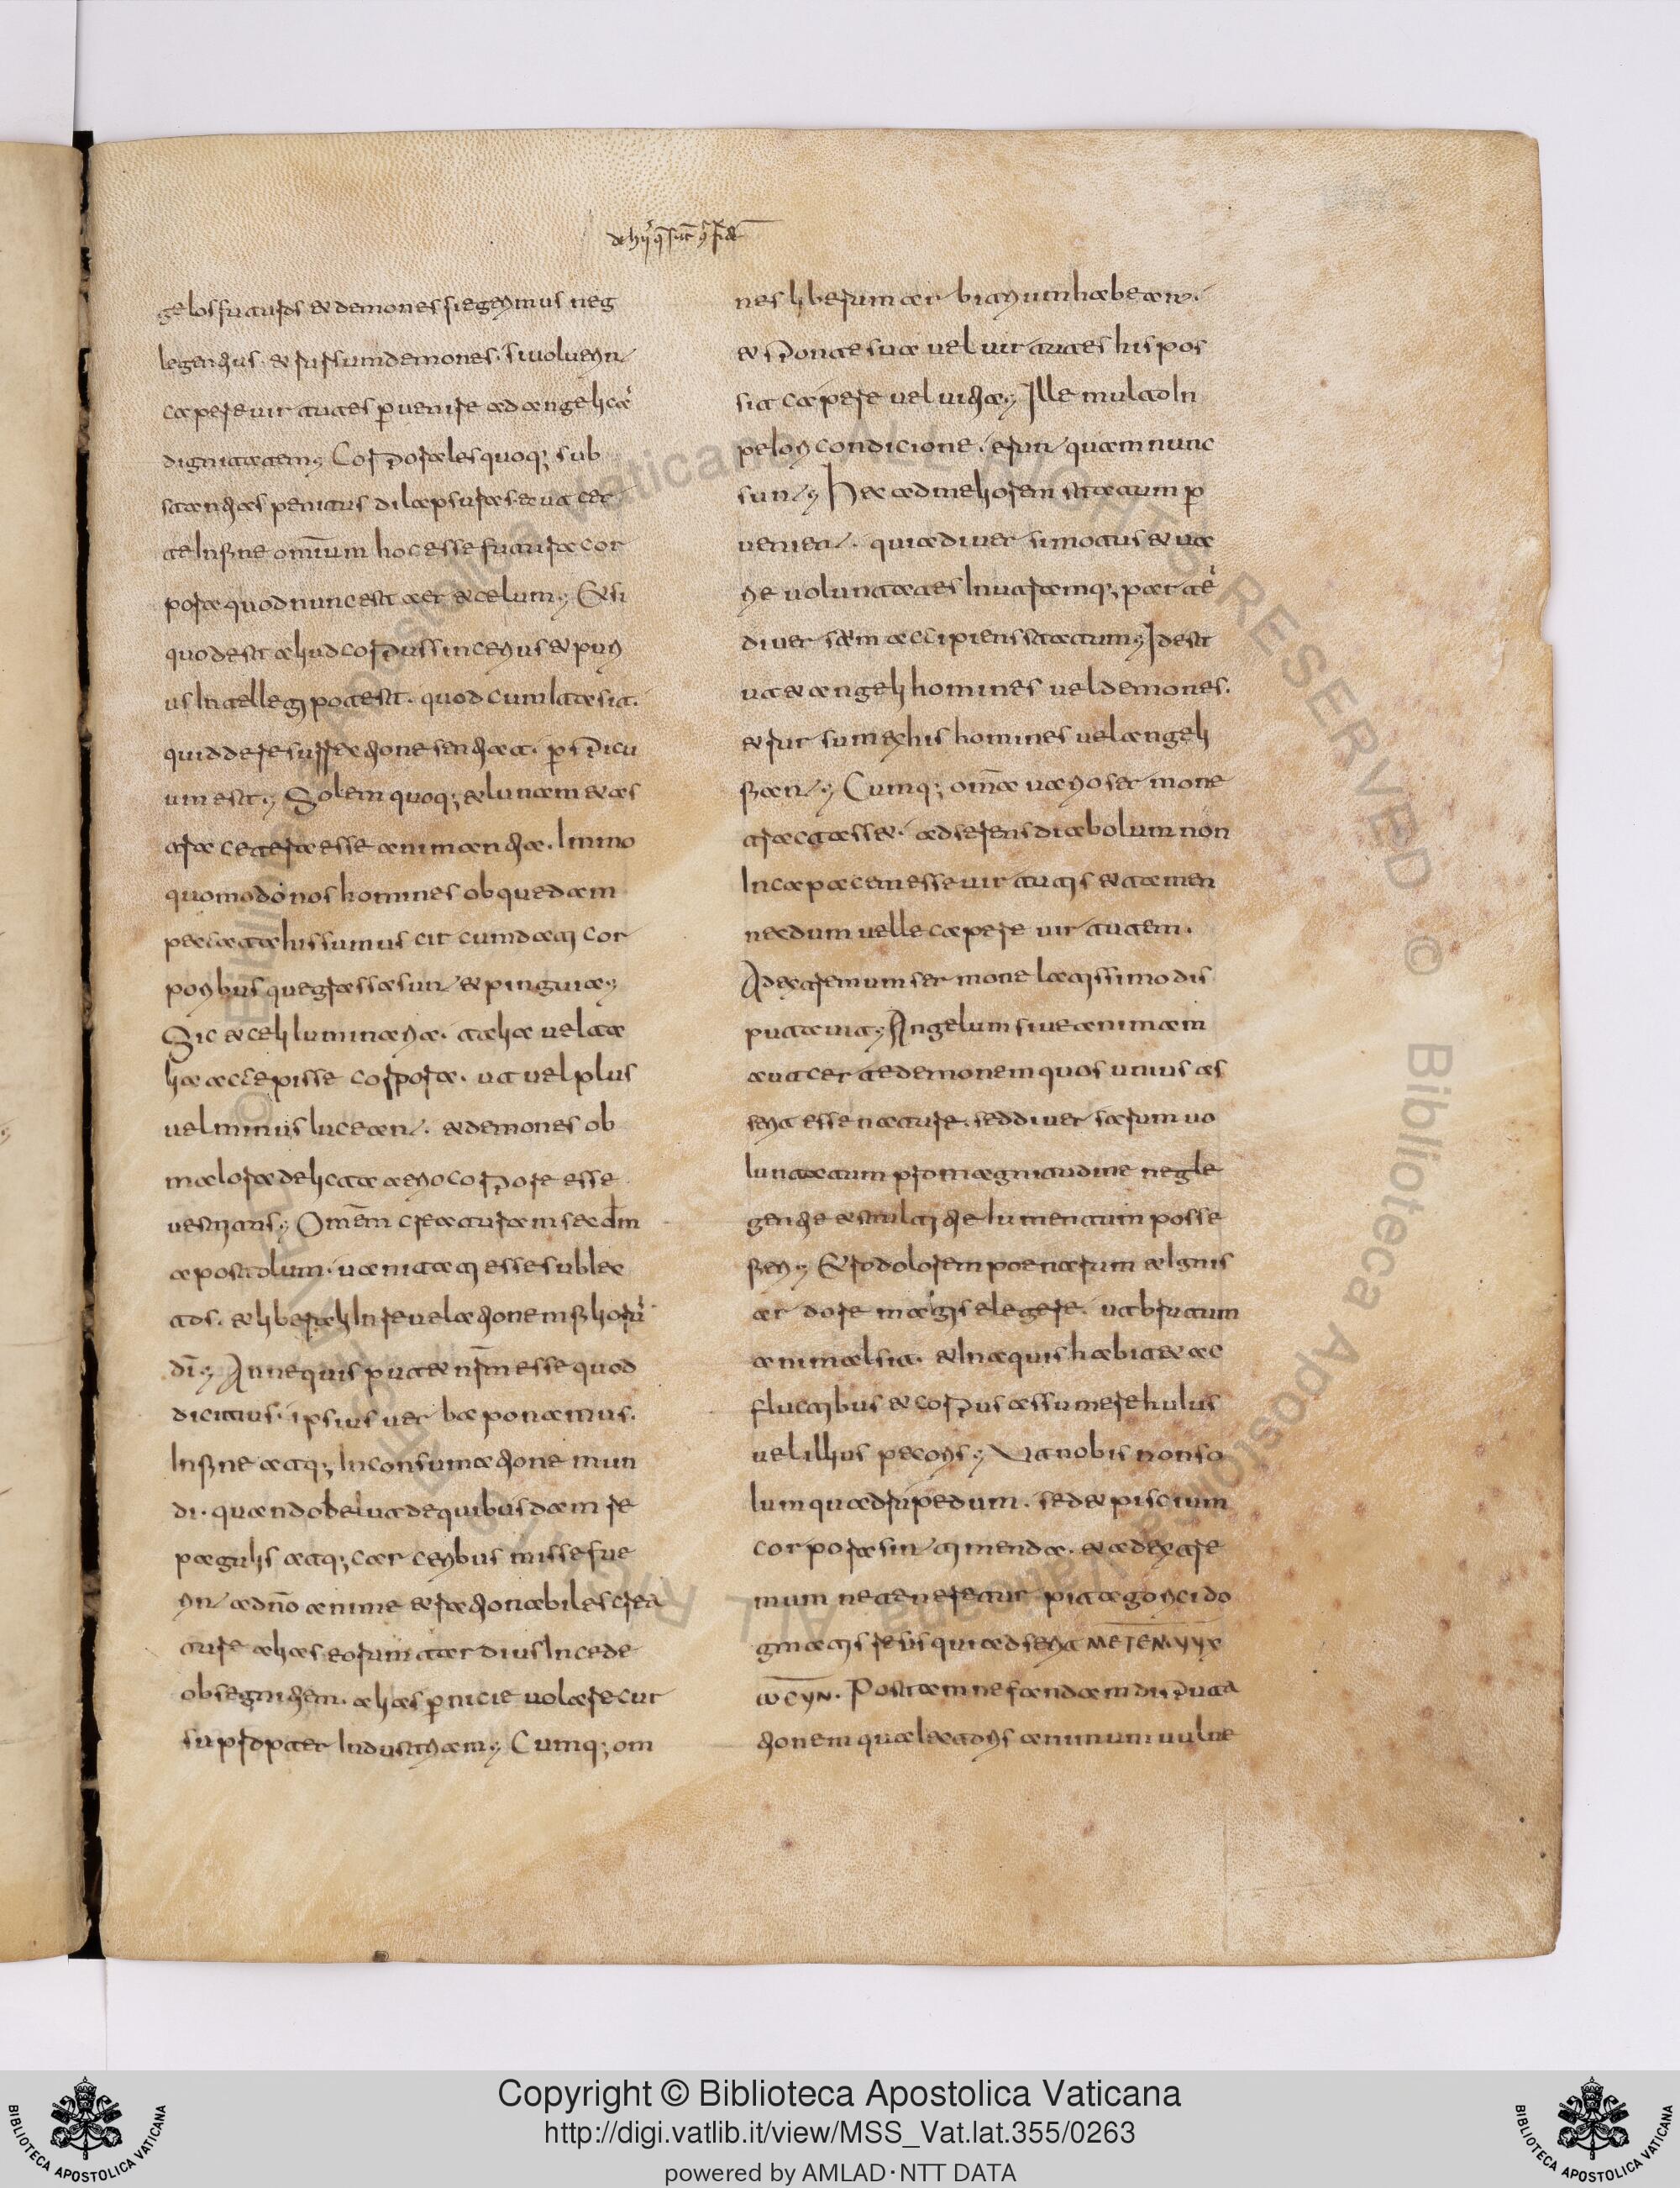 de hijs que sunt contra fidem
gelos futuros et demones si egerimus neg
legentius. et rursum demones. si voluerint
capere virtutes pervenire ad angelicā
dignitatem; Corporales quoq; sub
stantias penitus dilapsuras aut cer
te In fine omīum hoc esse futura cor
pora quod nunc est aer et celum; Et si
quod est aliud corpus sincerius et puri
us Intellegi potest. quod cum Ita sit.
quid de resurrectione sentiat. perspicu
um est; Solem quoq; et lunam et as
tra cetera esse animantia. Immo
quomodo nos homines ob quedam
peccata his sumus circumdati cor
poribus que grassa sunt et pinguia;
Sic et celi luminaria. talia vel ta
lia accepisse corpora. ut vel plus
vel minus luceant. et demones ob
maiora delicta aerio corpore esse
vestitos; Omēm creaturam secdm
apostolum. vanitati esse subiec
tos. et liberali In revelationem filiorū
dī; An ne quis putet nr̄m esse quod
dicimus. ipsius verba ponamus.
In fine atq; In consumatione mun
di. quando beluat de quibusdam re
pagulis atq; carceribus misse fue
rint a dn̄o anime et rationabiles crea
ture alias eorum tardius Incede
ob segnitiem. alias pernicie volare cur
su propter Industriam; Cumq; om
nes liberum arbitrium habeant.
et sponte sua vel virtutes his pos
sit capere vel vitia; Ille multo In
peiori condicione. erunt quam nunc
sunt; Hec ad meliorem statum per
venient. quia diversi motus et va
rie voluntates In utramq; partē
diversam accipiens statum; Idest
ut et angeli homines vel demones.
et rursum ex his homines vel angeli
fiant; Cumq; om̄a vario sermone
tractasset. adserens diabolum non
Incapacem esse virtutis et tamen
necdum velle capere virtutem.
Ad extremum sermone latissimo dis
putavit; Angelum sive animam
aut certe demonem quos unius as
serit esse nature. sed diversarum vo
luntatum pro magnitudine negle
gentie et stultitie Iumentum posse
fieri; Et pro dolorem poenarum et Ignis
ardore magis elegere. ut brutum
animal sit. et In aquis habitet ac
fluctibus et corpus assumere huius
vel illius pecoris; Ut nobis non so
lum quadrupedum. sed et piscium
corpora sint timenda. et ad extre
mum ne teneretur pitagorici do
gmatis reus qui adserit ΜΕΤΕΝΨΥΧ
ωϹΥΝ. Post tam nefandam disputa
tionem qua lectoris animum vulne